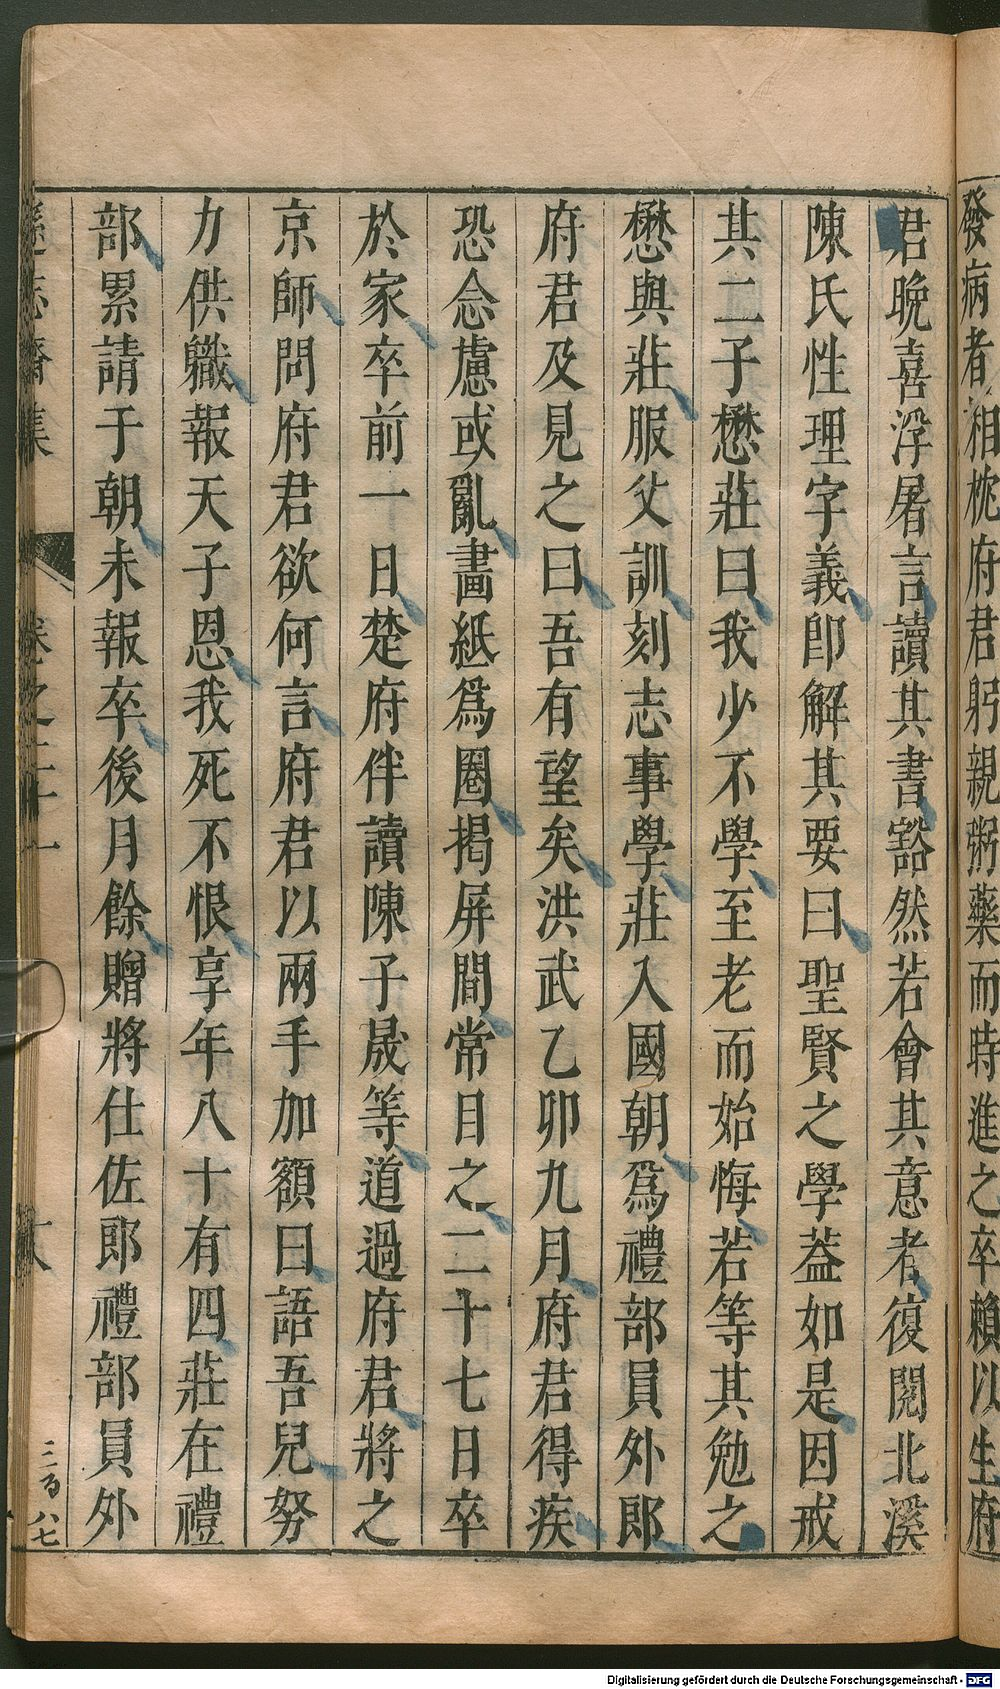 發病者相枕府君躬親粥藥而時進之卒賴以生府
君晚喜浮屠言讀其書豁然若會其意者復閱北溪
陳氏性理字義卽解其要曰聖賢之學葢如是因戒
其二子懋莊曰我少不學至老而始悔若等其勉之
懋與莊服父訓刻志事學莊入國朝爲禮部員外郎
府君及見之曰吾有望矣洪武乙卯九月府君得疾
恐念慮或亂畫紙爲圈揭屏間常目之二十七日卒
於家卒前一日楚府伴讀陳子晟等道過府君將之
京師問府君欲何言府君以兩手加額曰語吾兒努
力供職報天子恩我死不恨享年八十有四莊在禮
部累請于朝未報卒後月餘贈將仕佐郎禮部員外
遜志齋集
卷之二十一
三百八七
Digitalisierung gefördert durch die Deutsche Forschungsgemeinschaft - DFG